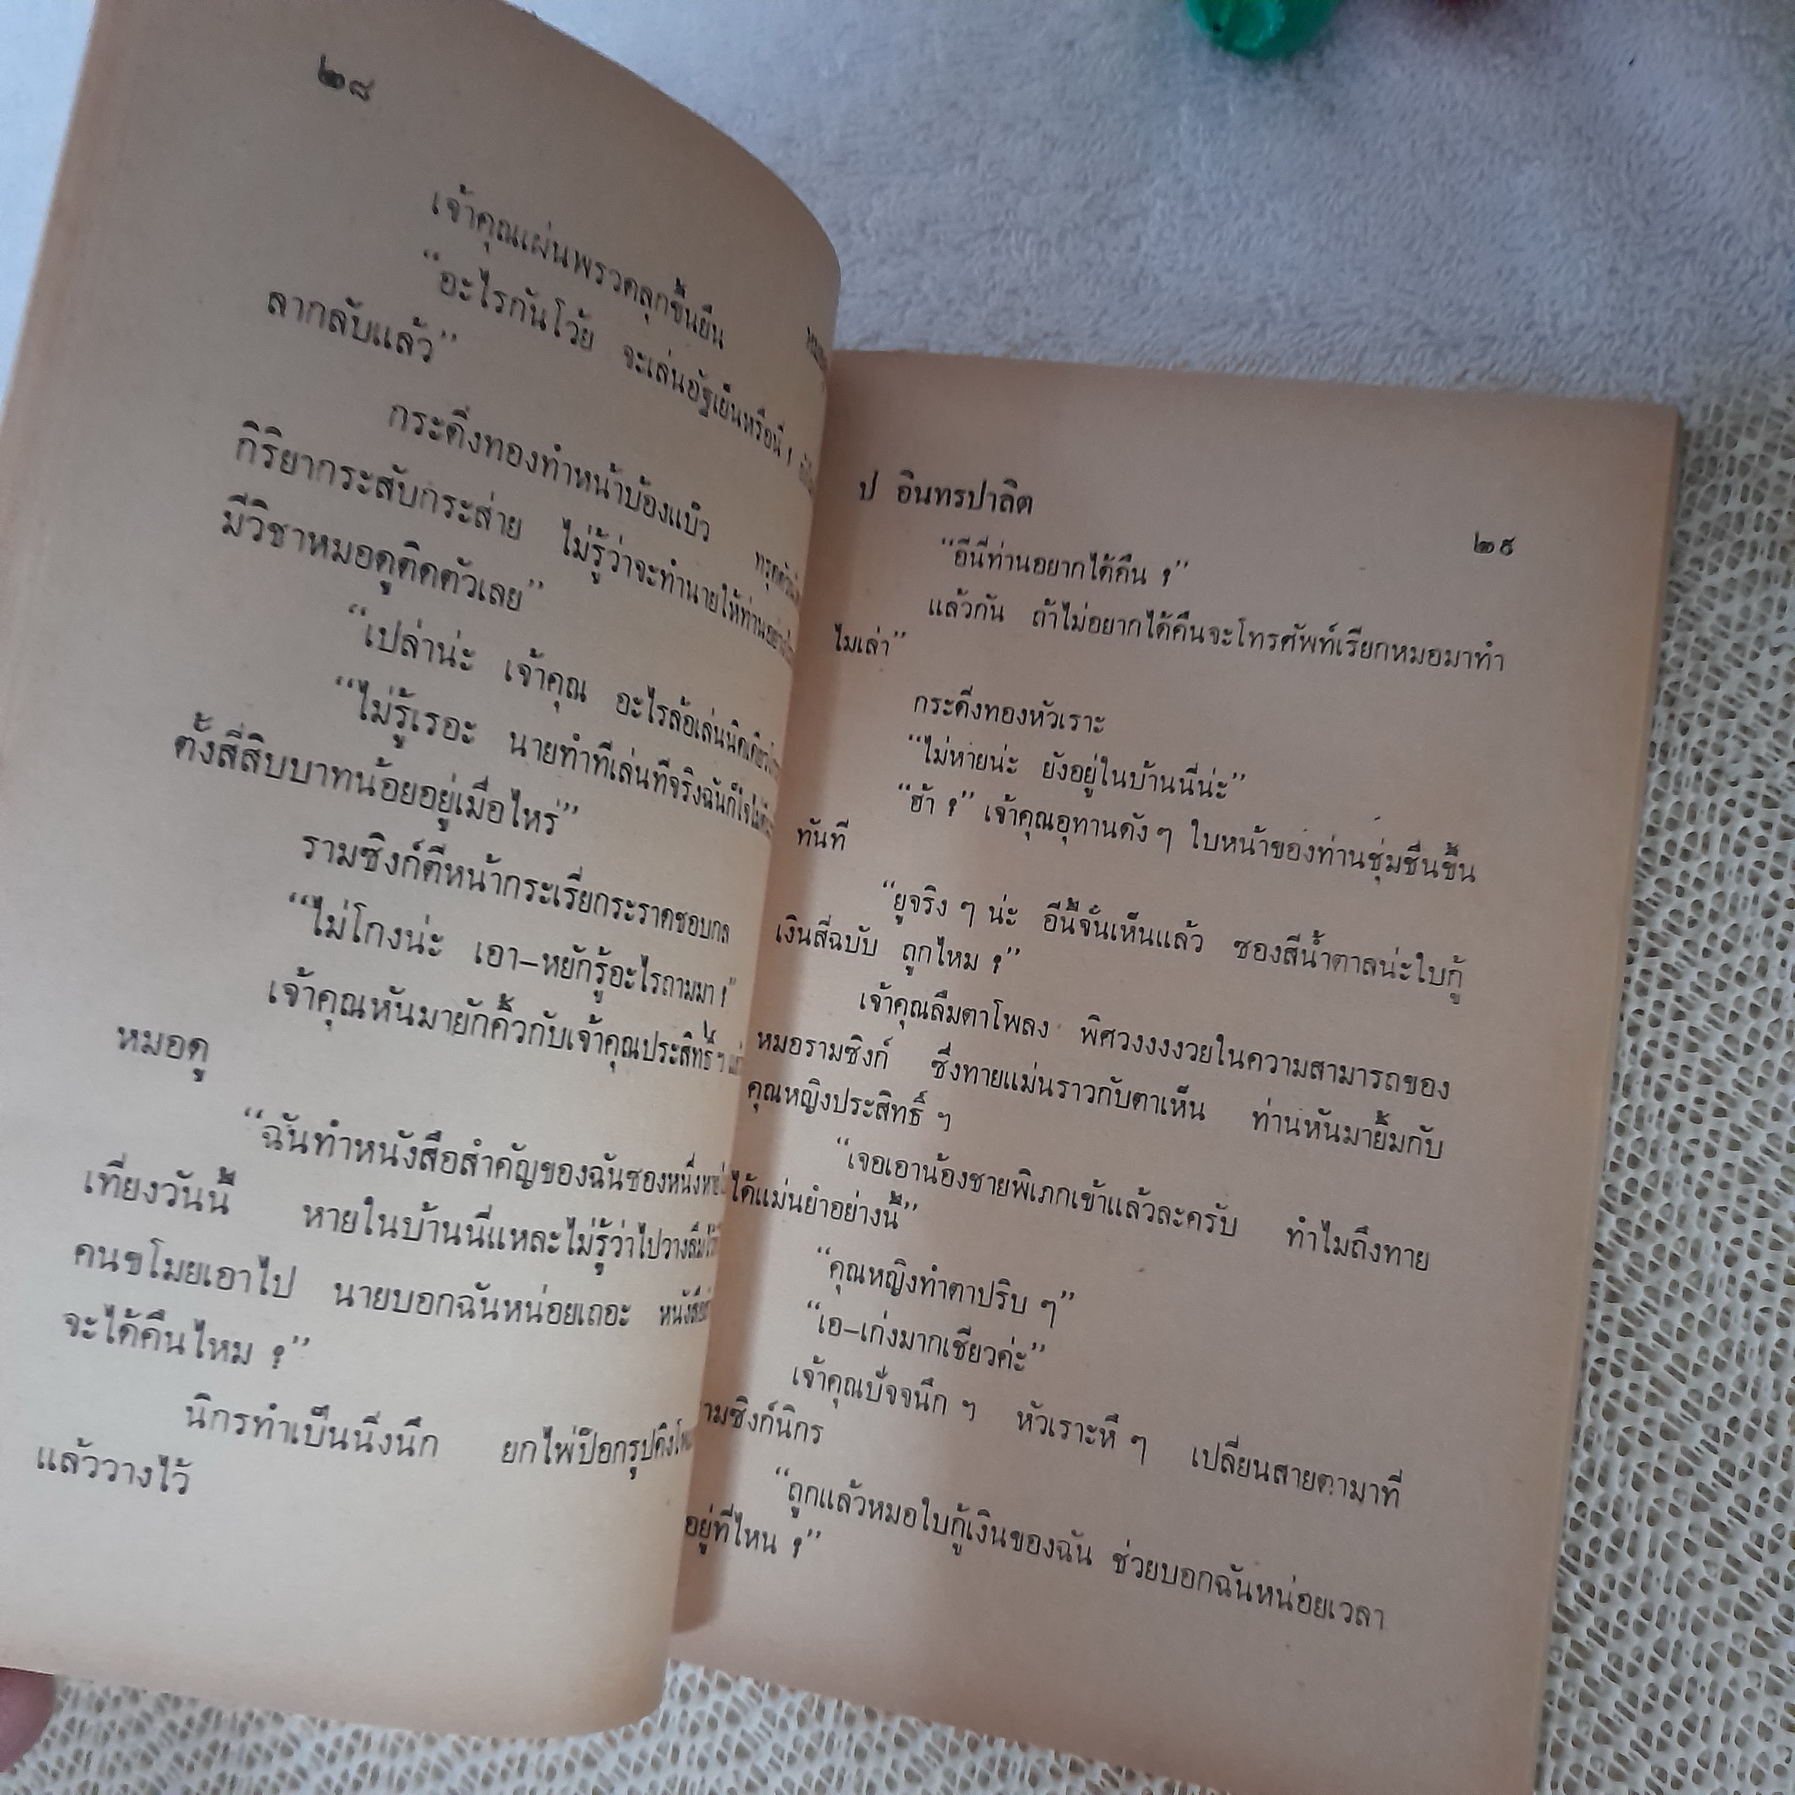 ๒๘
เจ้าคุณแผ่นพรวดลุกขึ้นยืน
“อะไรกันโว้ย จะเล่นอัฐเย็นหรือนี่ !
ลากลับแล้ว”
กระดิ่งทองทำหน้าบ้องแบ๊ว
กิริยากระสับกระส่าย ไม่รู้ว่าจะทำนายให้ท่าน
มีวิชาหมอดูติดตัวเลย”
“เปล่าน่ะ เจ้าคุณ อะไรล้อเล่นนิดเดียว
“ไม่รู้เรอะ นายทำทีเล่นทีจริงฉันก็ใจไม่ดี
ตั้งสี่สิบบาทน้อยอยู่เมื่อไหร่”
รามซิงก์ตีหน้ากระเรี่ยกระราดชอบกล
“ไม่โกงน่ะ เอา—หยักรู้อะไรถามมา ?”
เจ้าคุณหันมายักคิ้วกับเจ้าคุณประสิทธิ์ ๆ
หมอดู
“ฉันทำหนังสือสำคัญของฉันซองหนึ่งหาย
เที่ยงวันนี้ หายในบ้านนี่แหละไม่รู้ว่าไปวางลืม
คนขโมยเอาไป นายบอกฉันหน่อยเถอะ
จะได้คืนไหม ?”
นิกรทำเป็นนิ่งนึก ยกไพ่ป๊อกรูปคิง
แล้ววางไว้
ป อินทรปาลิต
๒๙
“อีนี่ท่านอยากได้คืน ?”
แล้วกัน ถ้าไม่อยากได้คืนจะโทรศัพท์เรียกหมอมาทำ
ไมเล่า”
กระดิ่งทองหัวเราะ
“ไม่หายน่ะ ยังอยู่ในบ้านนี่น่ะ”
“ฮ้า ?” เจ้าคุณอุทานดัง ๆ ใบหน้าของท่านชุ่มชื่นขึ้น
ทันที
“ยูจริง ๆ น่ะ อีนี้จั้นเห็นแล้ว ซองสีน้ำตาลน่ะใบกู้
เงินสี่ฉบับ ถูกไหม ?”
เจ้าคุณลืมตาโพลง พิศวงงงงวยในความสามารถของ
หมอรามซิงก์ ซึ่งทายแม่นราวกับตาเห็น ท่านหันมายิ้มกับ
คุณหญิงประสิทธิ์ ๆ
“เจอเอาน้องชายพิเภกเข้าแล้วละครับ ทำไมถึงทาย
ได้แม่นยำอย่างนี้”
“คุณหญิงทำตาปริบ ๆ”
“เอ—เก่งมากเชียวค่ะ”
เจ้าคุณปัจจนึก ๆ หัวเราะหึ ๆ เปลี่ยนสายตามาที่
ามซิงก์นิกร
“ถูกแล้วหมอใบกู้เงินของฉัน ช่วยบอกฉันหน่อยเวลา
อยู่ที่ไหน ?”